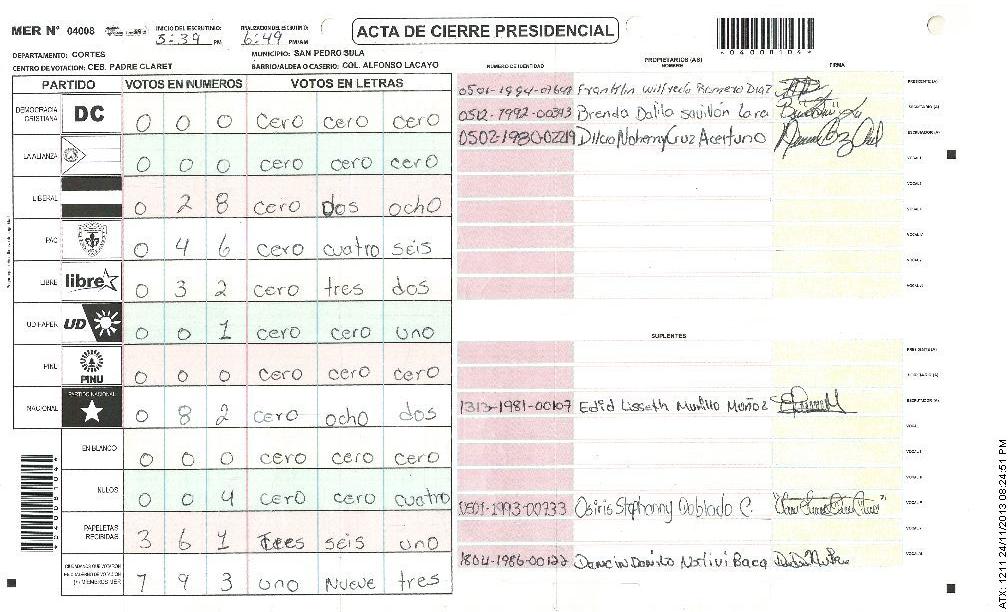 MER Nº 04008 INICIO DEL ESCRUTINIO: 5:39 PM FINALIZACION DEL ESCRUTINIO: 6:49 PM/AM
ACTA DE CIERRE PRESIDENCIAL
04008104
DEPARTAMENTO: CORTES MUNICIPIO: SAN PEDRO SULA
CENTRO DE VOTACION: CEB. PADRE CLARET BARRIO/ALDEA O CASERIO: COL. ALFONSO LACAYO
PARTIDO VOTOS EN NUMEROS VOTOS EN LETRAS
DEMOCRACIA CRISTIANA DC 0 0 0 cero cero cero
LA ALIANZA 0 0 0 cero cero cero
LIBERAL 0 2 8 cero dos ocho
PAC 0 4 6 cero cuatro seis
LIBRE libre 0 3 2 cero tres dos
UD/FAPER UD 0 0 1 cero cero uno
PINU PINU 0 0 0 cero cero cero
NACIONAL PARTIDO NACIONAL 0 8 2 cero ocho dos
EN BLANCO 0 0 0 cero cero cero
NULOS 0 0 4 cero cero cuatro
PAPELETAS RECIBIDAS 3 6 1 trees seis uno
CIUDADANOS QUE VOTARON (+) MIEMBROS MER 1 9 3 uno nueve tres
NUMERO DE IDENTIDAD PROPIETARIOS (AS) NOMBRE FIRMA
Franklin Wilfredo Romero Diaz PRESIDENTE (A)
Brenda Dalila Savillón Lara SECRETARIO (A)
0502-1980-02219 Dilcia Noherny Cruz Aceituno ESCRUTADOR (A)
VOCAL I
VOCAL II
VOCAL III
VOCAL IV
VOCAL V
SUPLENTES
PRESIDENTE (A)
SECRETARIO (A)
1313-1981-00107 Edid Lisseth Murillo Muñoz ESCRUTADOR (A)
0501-1993-00733 Osiris Stephanny Doblado C.
1804-1986-00122
ATX: 1211 24/11/2013 08:24:51 PM